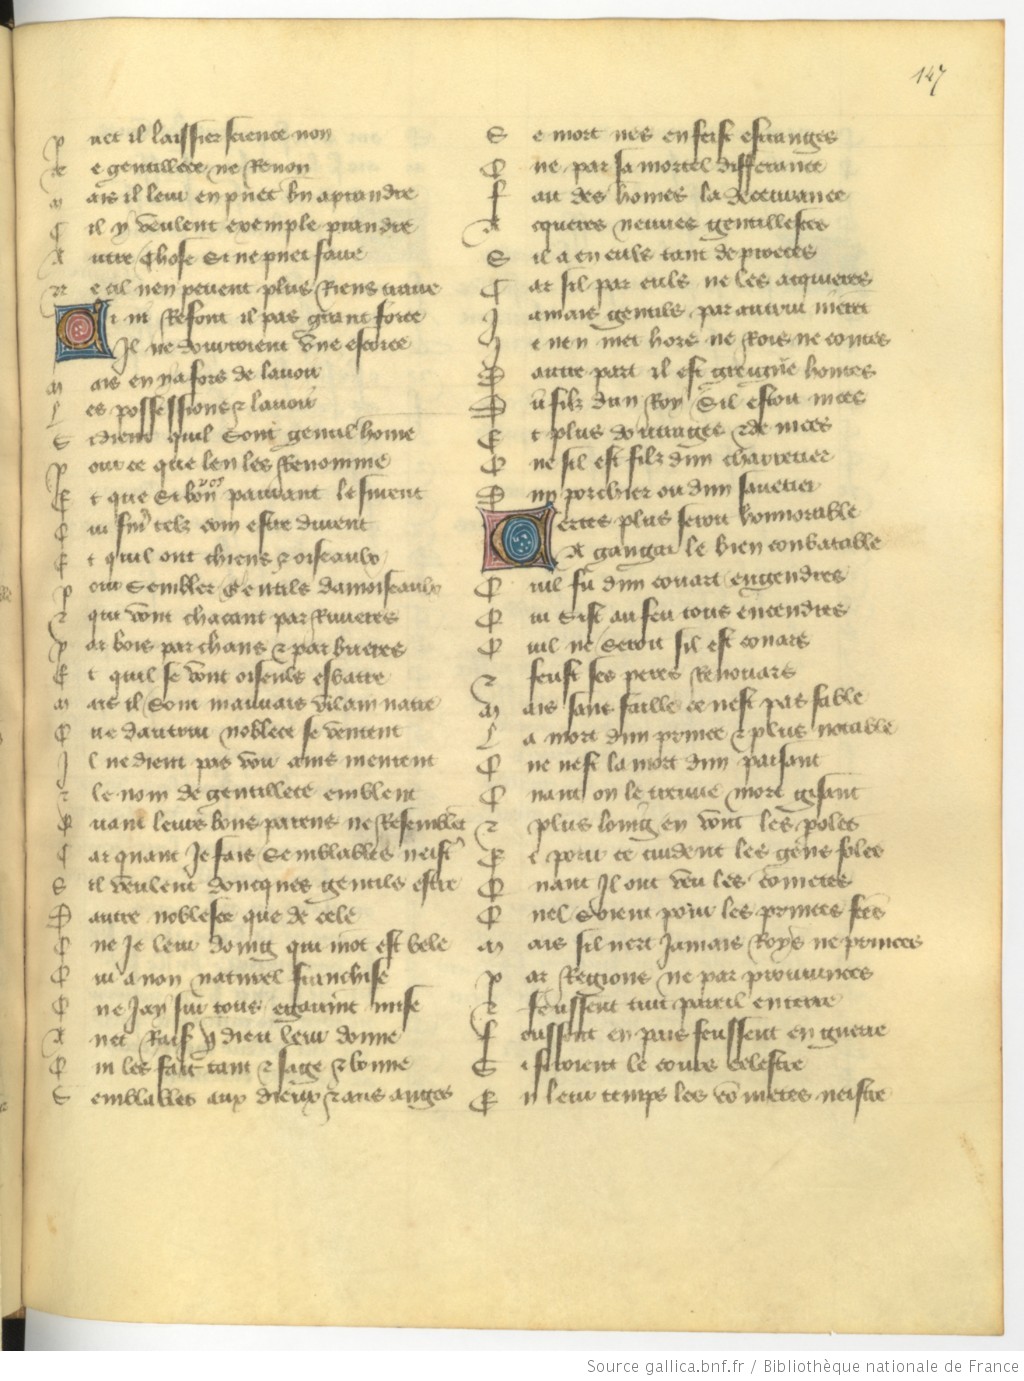 147
P uet il laissier science non
N e gentillece ne Renon
M ais il leur en puet bn aprandre
C il y veulent exemple prandre
A utre Chose Si ne puet faire
N e cil nen pevent plus Riens traire
Ci ni Refont il pas grant force
Il ne donrroient une escorce
M ais en na fors de lavoir
L es possessions & lavoir
S i dient quil Sont gentil home
P our ce que len les Renomme
E t que Si bon pavant le furent
Q ui furent telz com estre durent
E t quil ont chiens & oiseaulx
P our Sembler Gentils damoiseaulx
& qui vont chacant par Rivieres
P ar bois par chans & par bruieres
E t quil se vont oiseuls esbatre
M ais il Sont mauvais vilain natre
Q ue dautrui noblece se ventent
I l ne dient pas voir ains mentent
& le nom de gentillece emblent
Q uant leurs bons parens ne Resemblent
C ar quant Je fais Semblables neistre
S il veulent doncques gentils estre
D autre noblesce que de cele
Q ue Je leur doing qui mot est bele
Q ui a non naturel franchise
Q ue Jay sur tous egaument mise
A uec Raison que dieu leur donne
Q ui les fait tant & sage & bonne
S emblables aux dieux & aus anges
S e mort nes en feist estranges
Q ue par sa mortel differance
F ait des homes la decevrance
A cqueres neuves gentillesces
S il a en euls tant de proeces
C ar sil par euls ne les acquierent
J amais gentils par autrui nierent
J e nen met hors ne Rois ne contes
D autre part il est greigneur hontes
D un filz dun Roy Sil estoit nices
E t plus doutrages & de nices
Q ue sil est filz dun charretier
D un porchier ou dun savetier
Certes plus seroit honnorable
A gangar le bien conbatable
Q uil fu dun couart engendres
Q ui Sist au feu tous encendres
Q uil ne Seroit sil est couars
& feust ses peres Renouars
M ais sans faille ce nest pas fable
L a mort dun prince & plus notable
Q ue nest la mort dun paisant
Q uant on le treuve mort gisant
& plus loing en vont les poles
E t pour ce cuident les gens foles
Q uant Jl ont veu les cometes
Q uel Soient pour les princes fetes
M ais sil niert Jamais Roys ne princes
P ar Regions ne par provinces
& feussent tuit pareil en terre
F eussent en pais feussent en guerre
S i feroient le cours celestre
E n leur temps les cometes neistre
Source gallica.bnf.fr / Bibliothèque nationale de France